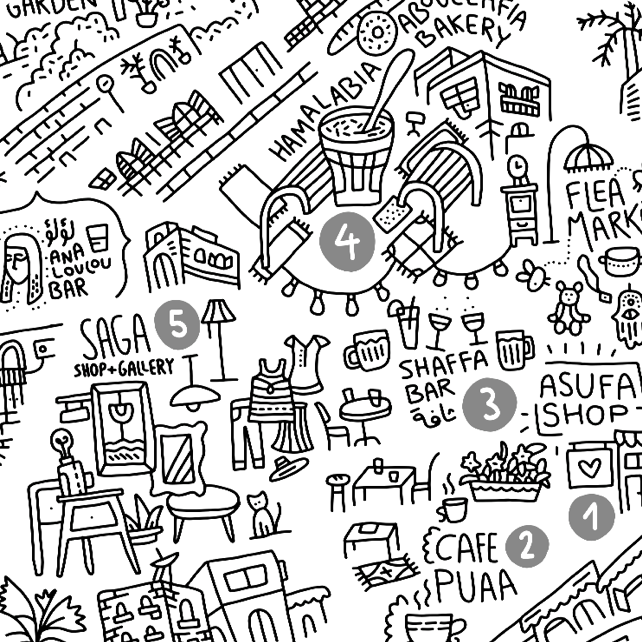 GARDEN
ABOUELAFIA
BAKERY
HAMALABIA
4
FLEA
MARK
لؤلؤ
ANA
LOULOU
BAR
SAGA
5
SHOP+GALLERY
SHAFFA
BAR
3
ASUFA
SHOP
1
CAFE
2
PUAA